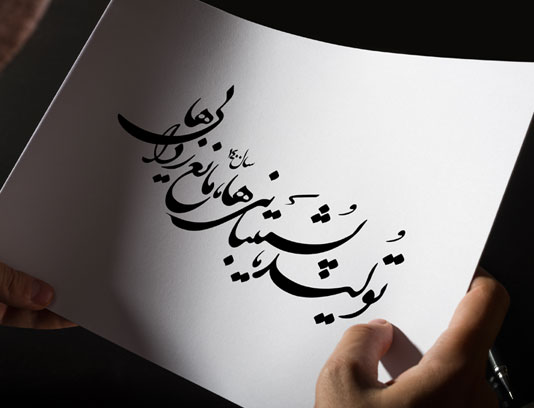 تولید، پشتیبانی‌ها، مانع‌زدایی‌ها
سال